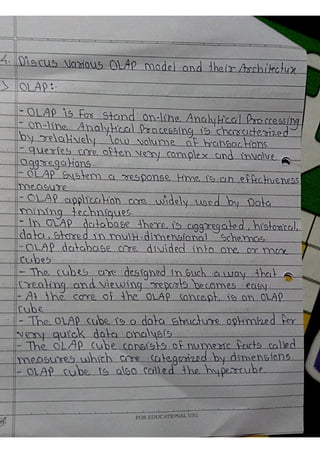 4. Discus various OLAP model and their Architectur
OLAP:-
- OLAP is for stand on-line Analytical Processing
- on-line Analytical Processing is characterized
by relatively low volume of transactions
- queries are often very complex and involve
aggregations.
- OLAP System a response time is an effectiveness
measure
- OLAP application are widely used by Data
mining techniques
- In OLAP database there is aggregated, historical
data, stored in multi-dimensional schemas.
- OLAP database are divided into one or more
cubes
- The cubes are designed in such a way that
creating and viewing reports becomes easy
- At the core of the OLAP concept, is an OLAP
cube
- The OLAP cube is a data structure optimized for
very quick data analysis
- The OLAP cube consists of numeric facts called
measures which are categorized by dimensions
- OLAP cube is also called the hypercube.
FOR EDUCATIONAL USE